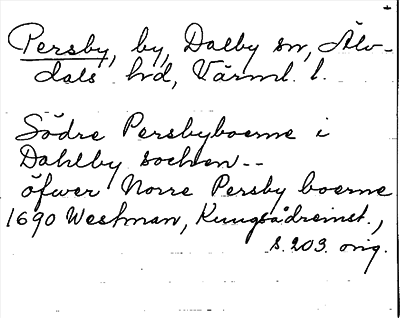 Persby, by, Dalby sn, Älv-
dals hd, Värml. l.
Södre Persbyboerne i
Dahlby sochen--
öfwer Norre Persby boerne
1690 Westman, Kungsådreinst.,
s. 203. orig.